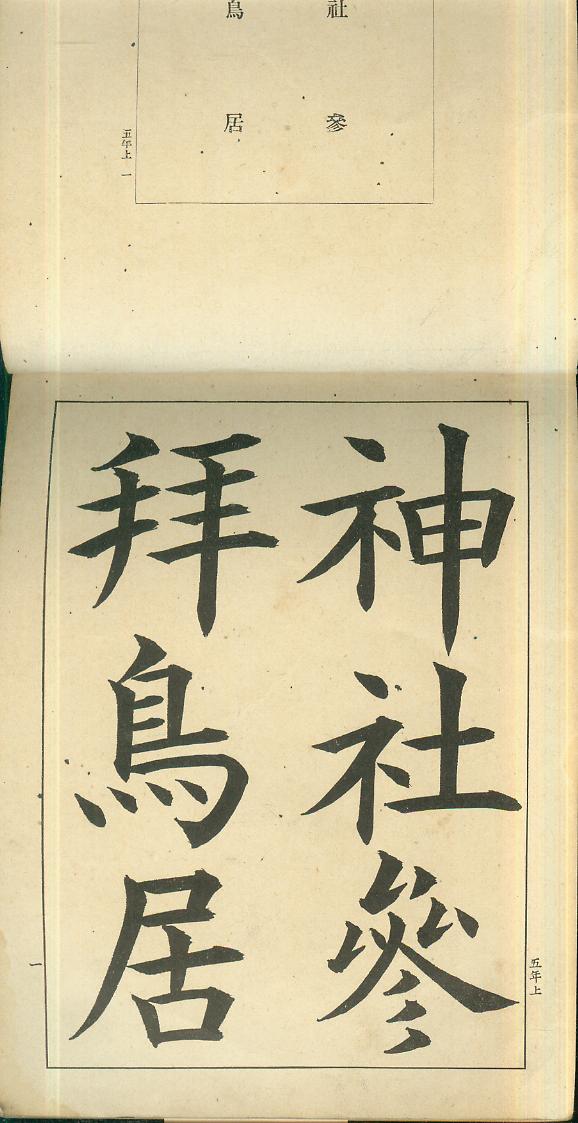 社參
鳥居
五年上 一
神社參
拜鳥居
五年上
一